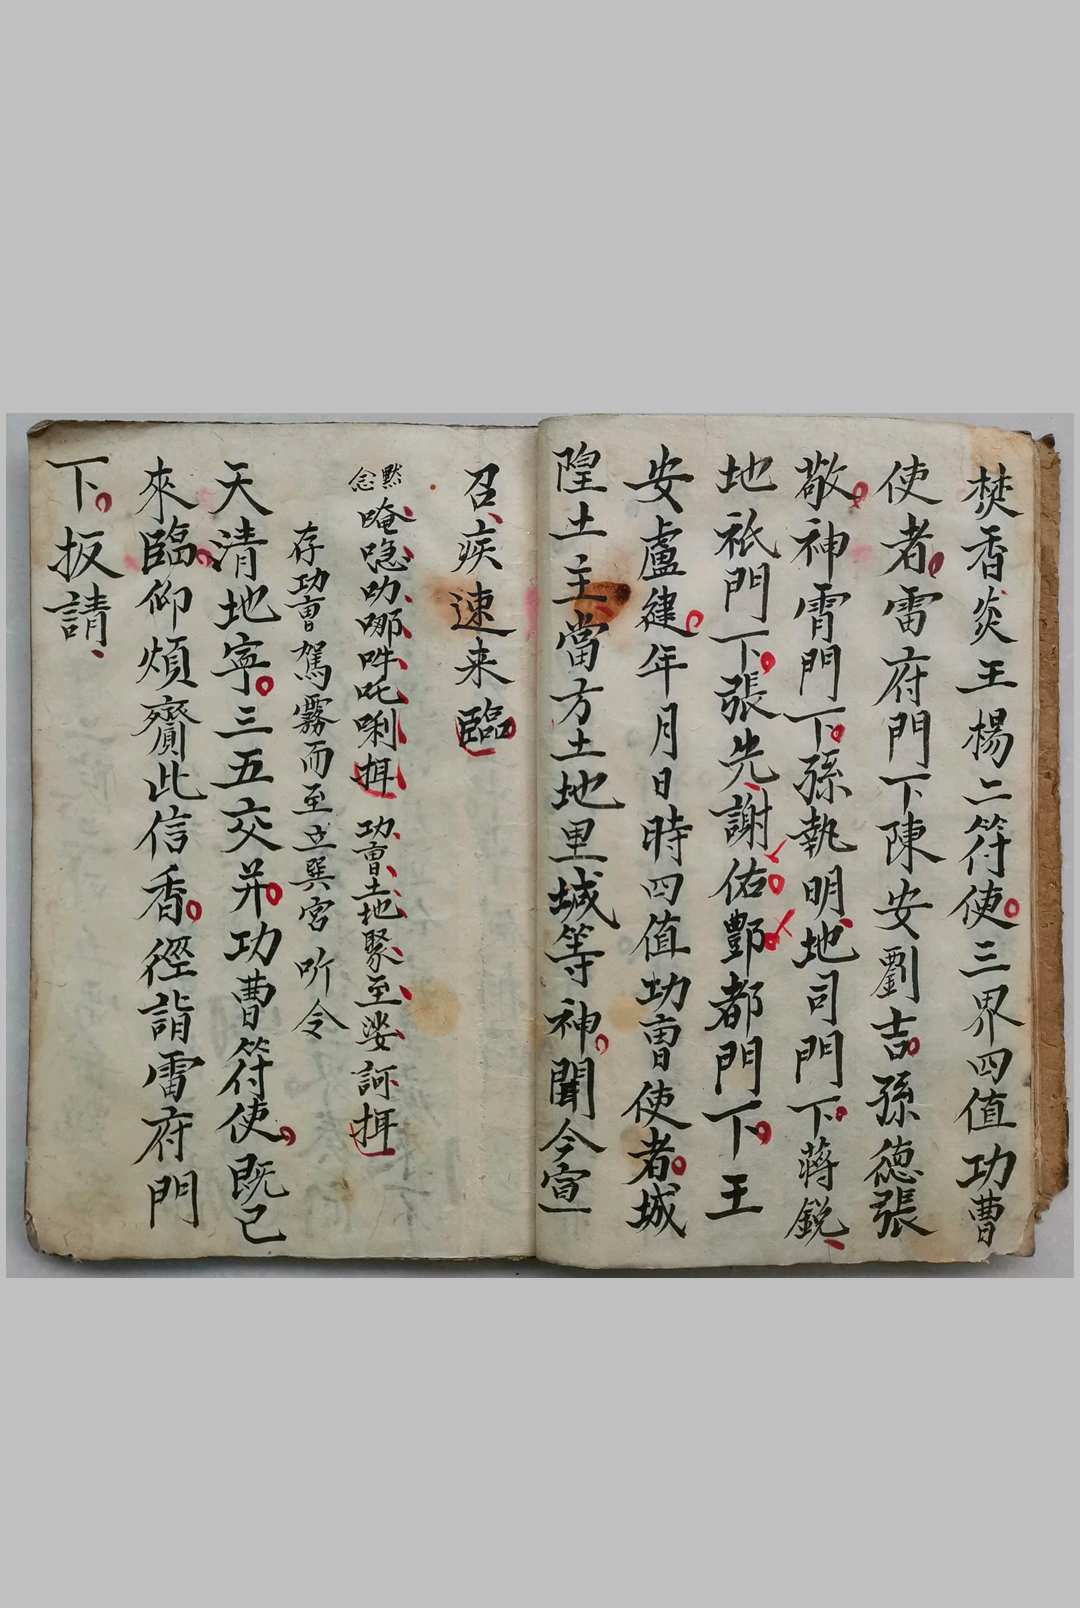 焚香炎王楊二符使三界四值功曹
使者雷府門下陳安劉吉孫德張
敬神霄門下孫執明地司門下蔣銳
地祇門下張先謝佑酆都門下王
安盧健年月日時四值功曹使者城
隍土主當方土地里域等神聞今宣
召疾速来臨
默念 唵唿叻哪吽吒唎㨏 功曹土地聚至娑訶㨏
存功曹駕霧而至立巽宮听令
天清地寧三五交并功曹符使既已
來臨仰煩賷此信香徑詣雷府門
下扳請